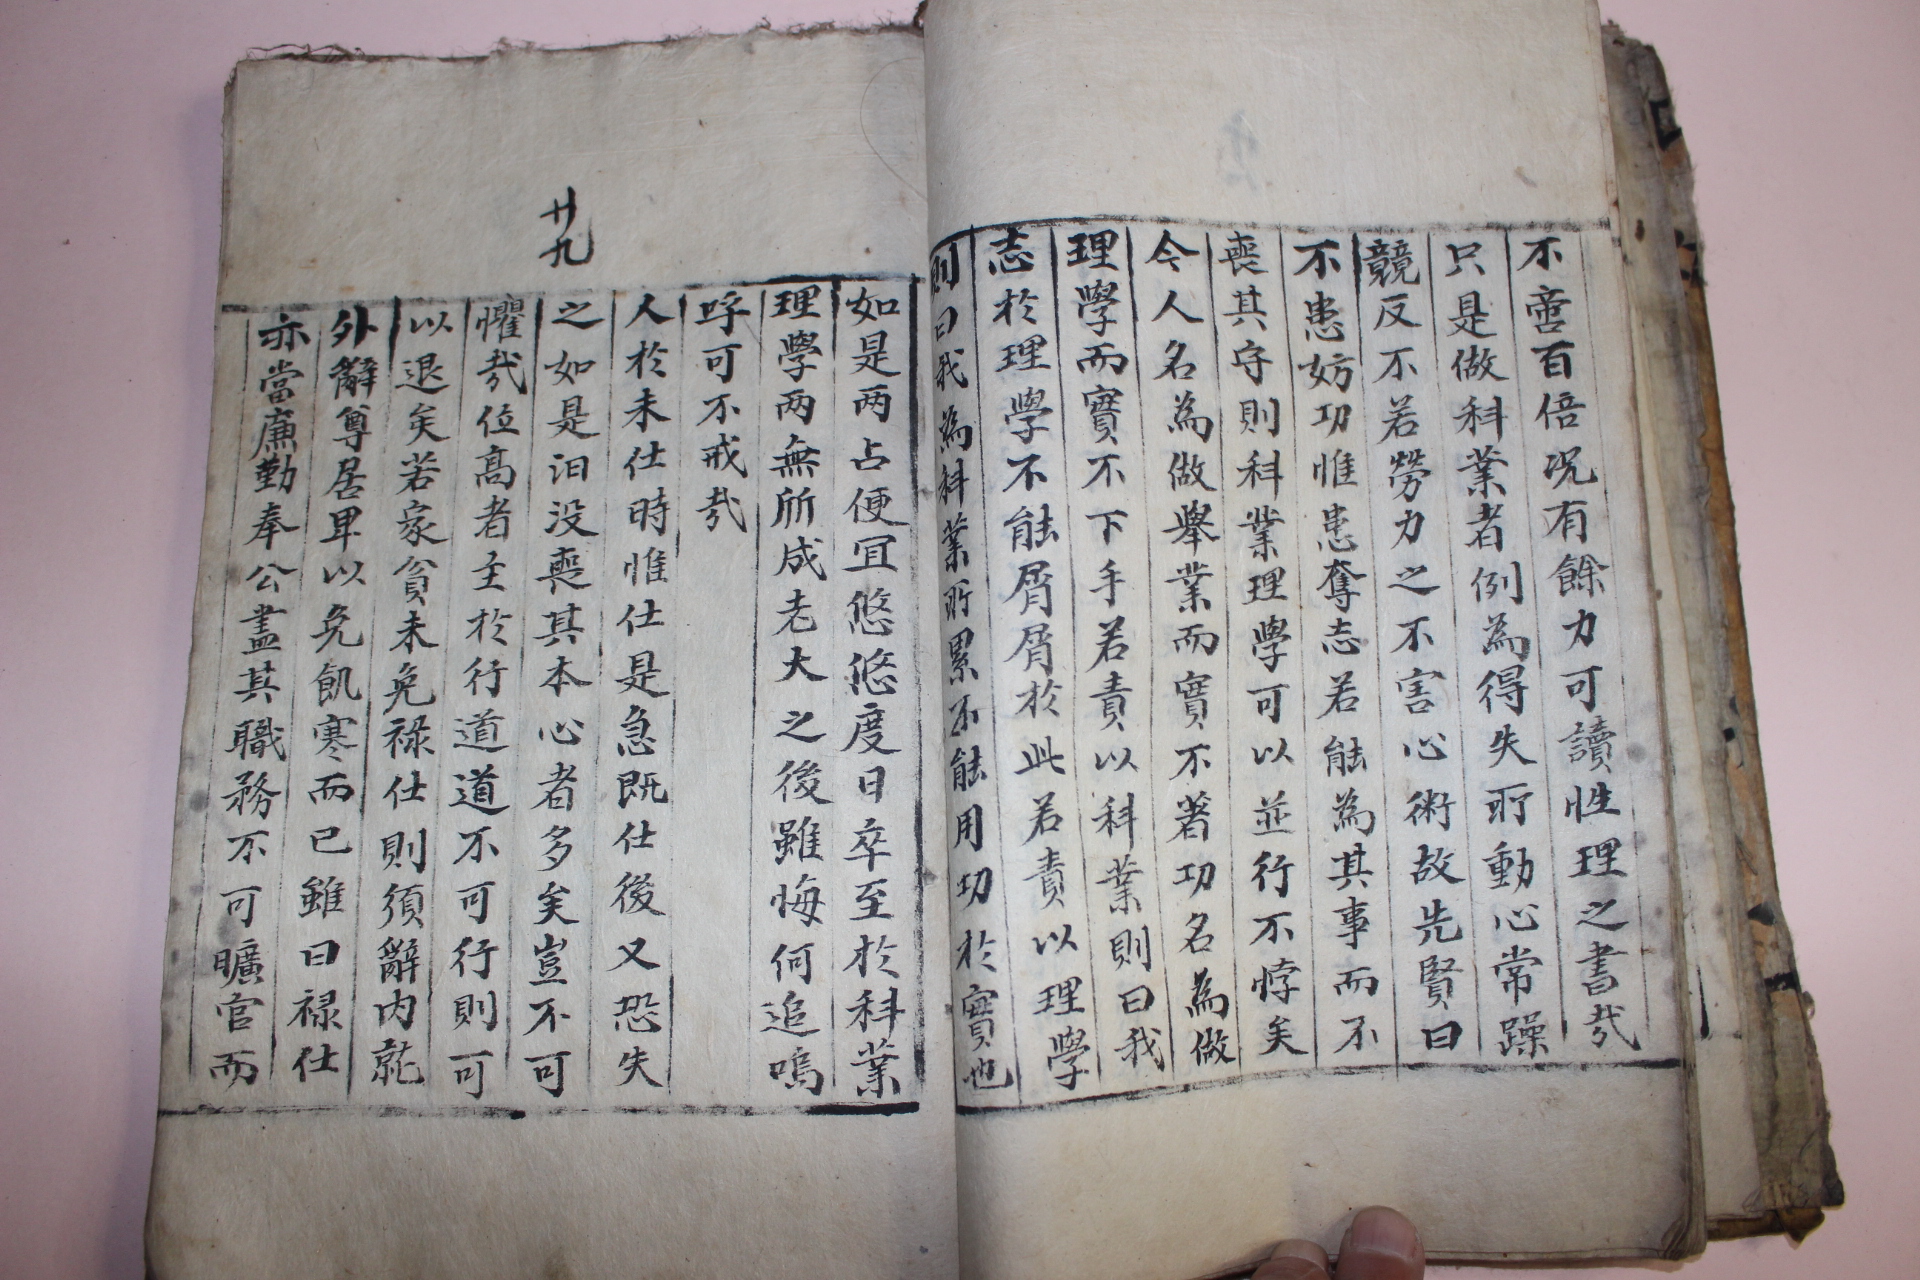 不啻百倍況有餘力可讀性理之書哉
只是做科業者例爲得失所動心常躁
競反不若勞力之不害心術故先賢曰
不患妨功惟患奪志若能爲其事而不
喪其守則科業理學可以並行不悖矣
今人名爲做舉業而實不著功名爲做
理學而實不下手若責以科業則曰我
志於理學不能屑屑於此若責以理學
則曰我爲科業所累不能用功於實也
如是两占便冝悠悠度日卒至於科業
理學两無所成老大之後雖悔何追嗚
呼可不戒哉
人於未仕時惟仕是急既仕後又恐失
之如是汩没喪其本心者多矣豈不可
懼哉位高者主於行道道不可行則可
以退矣若家貧未免祿仕則須辭內就
外辭尊居卑以免飢寒而已雖曰祿仕
亦當廉勤奉公盡其職務不可曠官而
廿九